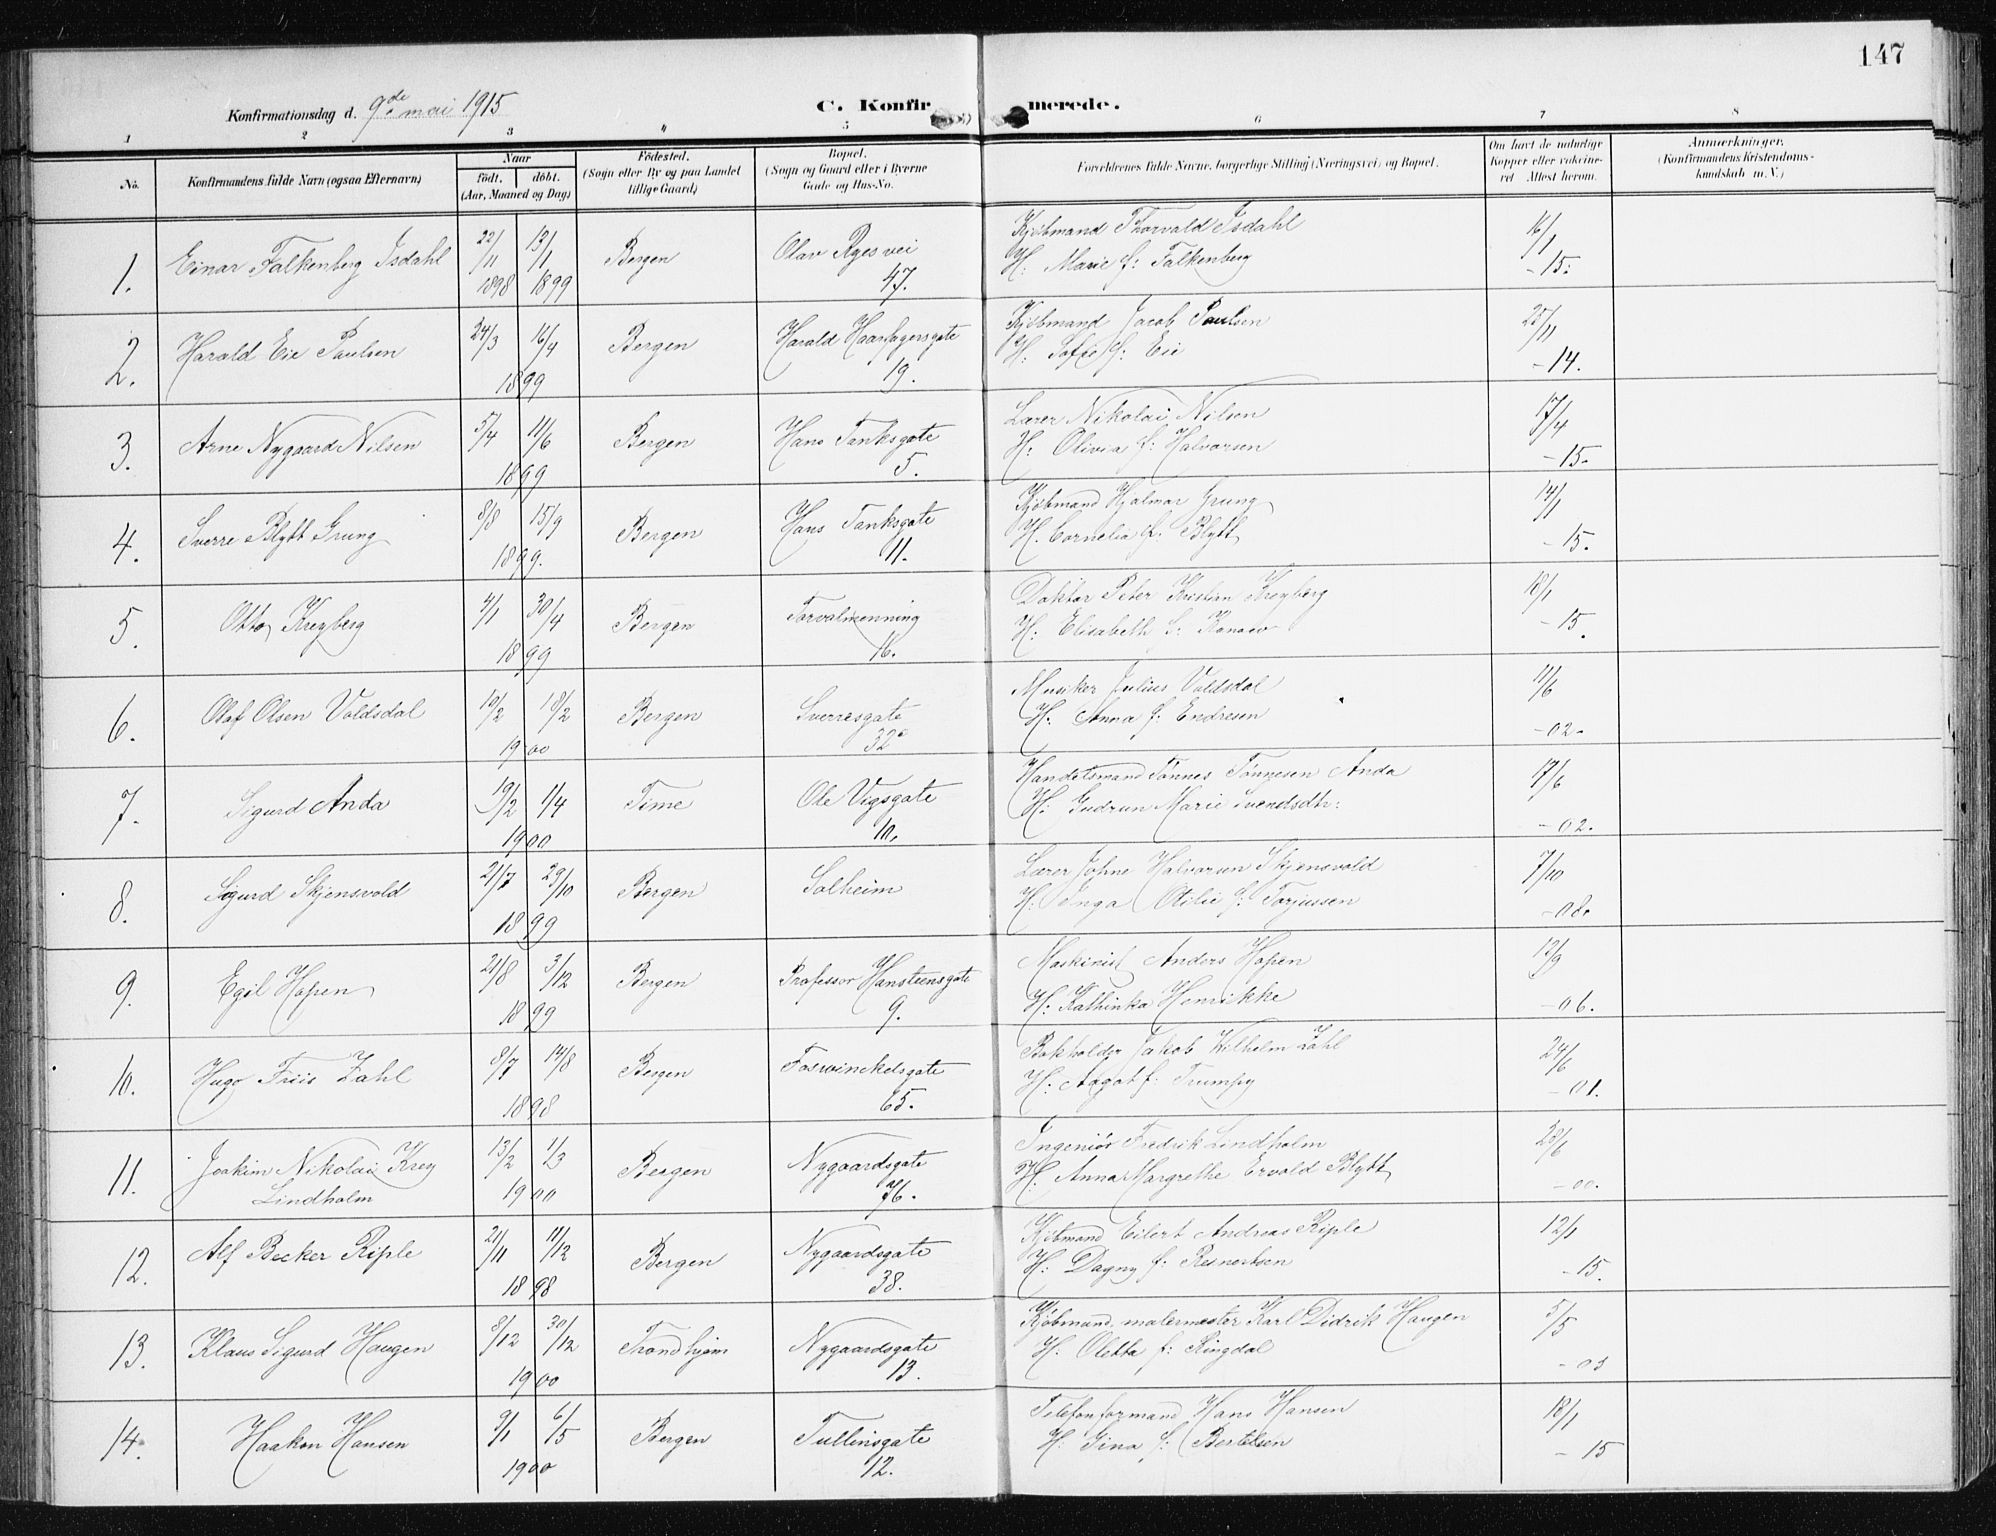 147
Konfirmationsdag d. 9de mai 1915
C. Konfirmerede.
1 2 3 4 5 6 7 8
No. Konfirmandens fulde Navn (ogsaa Efternavn) Naar födt. döbt. (Aar, Maaned og Dag) Födested. (Sogn eller By og paa Landet tillige Gaard) Bopæl. (Sogn og Gaard eller i Byerne Gade og Hus-No. Forældrenes fulde Navne, borgerlige Stilling (Næringsvei) og Bopæl. Om havt de naturlige Kopper eller vakcineret Attest herom. Anmærkninger. (Konfirmandens Kristendomskundskab m. V.)
1. Einar Falkenberg Isdahl 22/11 1898 13/1 1899 Bergen Olav Ryes vei 47. Kjøbmand Thorvald Isdahl
H: Marie f: Falkenberg 16/1 -15.
2. Harald Eie Paulsen 24/3 16/4 1899 Bergen Harald Haarfagersgate 19. Kjøbmand Jacob Paulsen
H: f: Eie 25/11 -14.
3. Arne Nygaard Nilsen 5/4 11/6 1899 Bergen Hans Tanksgate 5. Lærer Nikolai Nilsen
H: Olivia f: Halvorsen 17/4 -15.
4. Sverre Blytt Grung 8/8 15/9 1899. Bergen Hans Tanksgate 11. Kjøbmand Hjalmar Grung
H. Cornelia f. Blytt 14/1 -15.
5. Otto Kreyberg 4/1 30/4 1899 Bergen Torvalmenning 16. Doktor Peter Kristian Kreyberg
H: Elisabeth f: Konow 18/1 -15.
6. Olaf Olsen Voldsdal 10/2 18/2 1900 Bergen Sverresgate 32 Musiker Julius Voldsdal
H: Anna f: Endresen 11/6 -02.
7. Sigurd Anda 19/2 1/4 1900 Time Ole Vigsgate 10. Handelsmand Tønnes Tønnesen Anda
H: Gudrun Marie Svendsdtr: 17/6 -02.
8. Sigurd Skjensvold 21/7 29/10 1899 Bergen Solheim Lærer Johne Halvorsen Skjensvold
H: Inga Otilie f: Torjussen 7/10 -08.
9. Egil Hopen 21/8 3/12 1899 Bergen Professor Hansteensgate 9. Maskinist Anders Hopen
H: Kathinka Henrikke 13/9 -06.
10. Hugo Friis Zahl 8/7 14/8 1898 Bergen Foswinckelsgate 65. Bokholder Jakob Wilhelm Zahl
H: Aagot f: Trumpy 24/6 -01.
11. Joakim Nikolai Krey Lindholm 13/2 1/3 1900 Bergen Nygaardsgate 76. Ingeniør Fredrik Lindholm
H: Anna Margrethe Ervold Blytt 28/6 -00.
12. Alf Becker Riple 21/11 11/12 1898 Bergen Nygaardsgate 38. Kjøbmand Eilert Andreas Riple
H: Dagny f: Reinertsen 12/1 -15.
13. Klaus Sigurd Haugen 8/12 30/12 1900 Trondhjem Nygaardsgate 13. Kjøbmand, malermester Karl Didrik Haugen
H: Oletta f: Ringdal 5/5 -03
14. Haakon Hansen 9/1 6/5 1900 Bergen Tullinsgate 12. Telefonformand Hans Hansen
H: Gina f: Bertelsen 18/1 -15